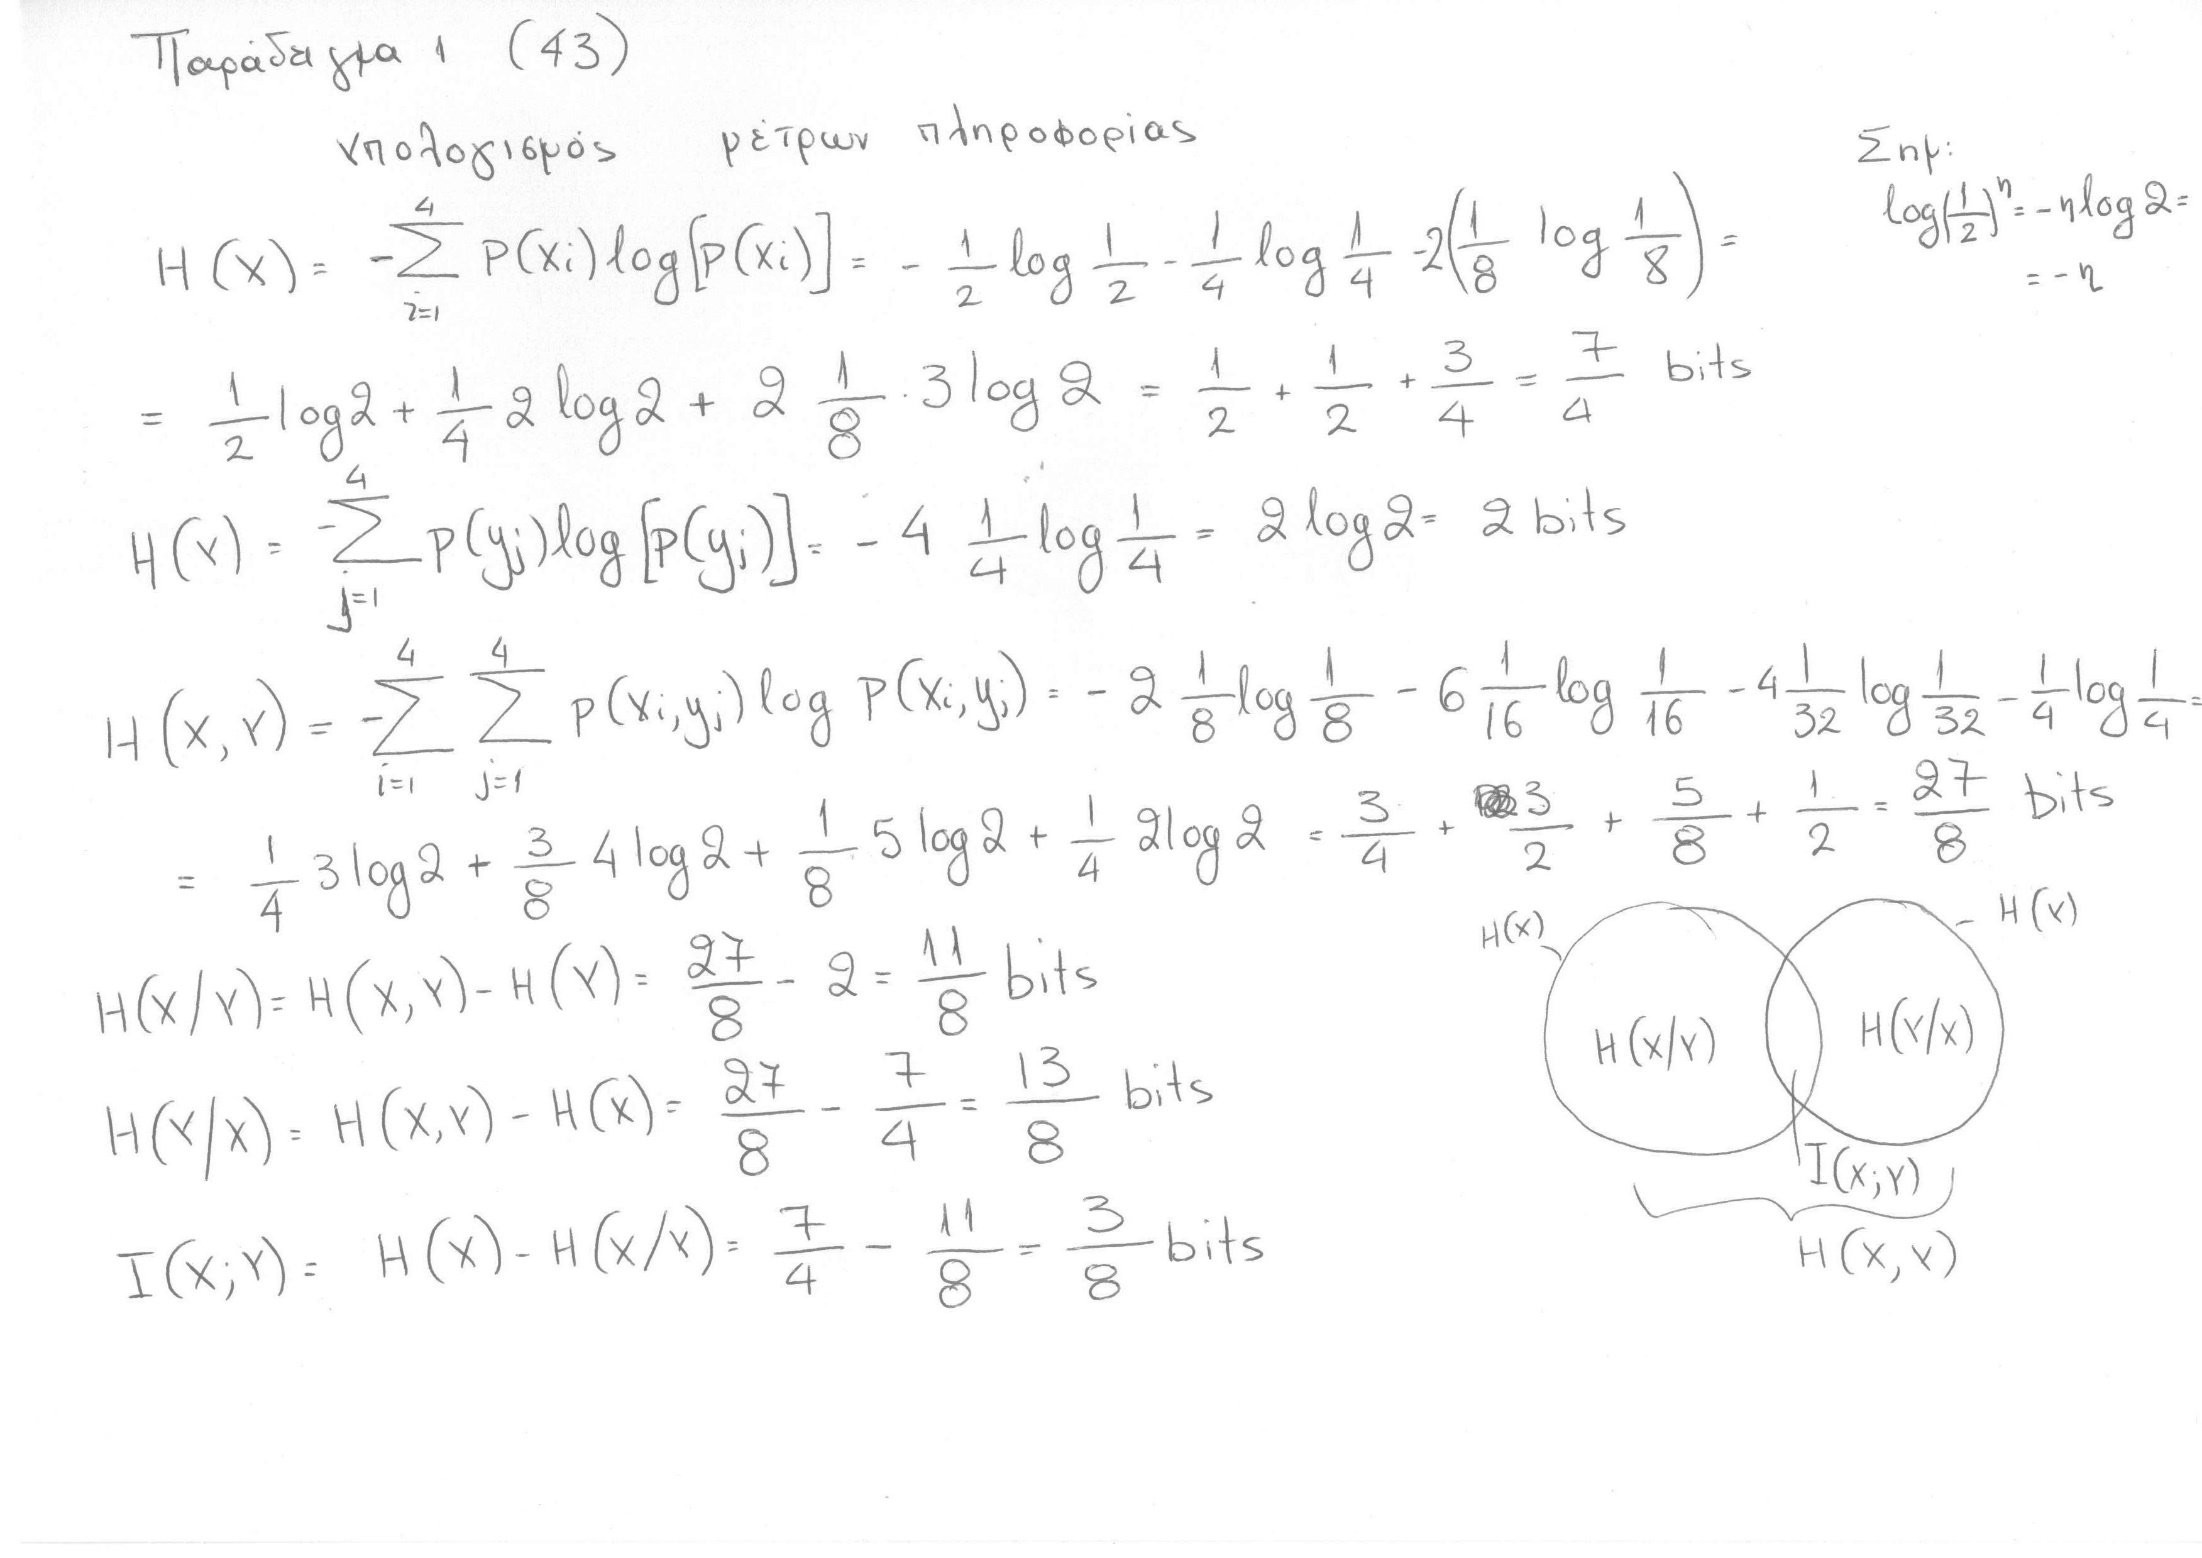 Παράδειγμα 1 (43)
Υπολογισμός μέτρων πληροφορίας
Σημ:
log(1/2)^n = -n log 2 =
= -n
H(X) = -∑_{i=1}^{4} p(xi) log[p(xi)] = - 1/2 log 1/2 - 1/4 log 1/4 - 2(1/8 log 1/8) =
= 1/2 log 2 + 1/4 2 log 2 + 2 1/8 · 3 log 2 = 1/2 + 1/2 + 3/4 = 7/4 bits
H(Y) = -∑_{j=1}^{4} p(yj) log[p(yj)] = - 4 1/4 log 1/4 = 2 log 2 = 2 bits
H(X,Y) = -∑_{i=1}^{4} ∑_{j=1}^{4} p(xi,yj) log p(xi,yj) = - 2 1/8 log 1/8 - 6 1/16 log 1/16 - 4 1/32 log 1/32 - 1/4 log 1/4 =
= 1/4 3 log 2 + 3/8 4 log 2 + 1/8 5 log 2 + 1/4 2 log 2 = 3/4 + 3/2 + 5/8 + 1/2 = 27/8 bits
H(X/Y) = H(X,Y) - H(Y) = 27/8 - 2 = 11/8 bits
H(Y/X) = H(X,Y) - H(X) = 27/8 - 7/4 = 13/8 bits
I(X;Y) = H(X) - H(X/Y) = 7/4 - 11/8 = 3/8 bits
H(X)
H(Y)
H(X/Y)
H(Y/X)
I(X;Y)
H(X,Y)